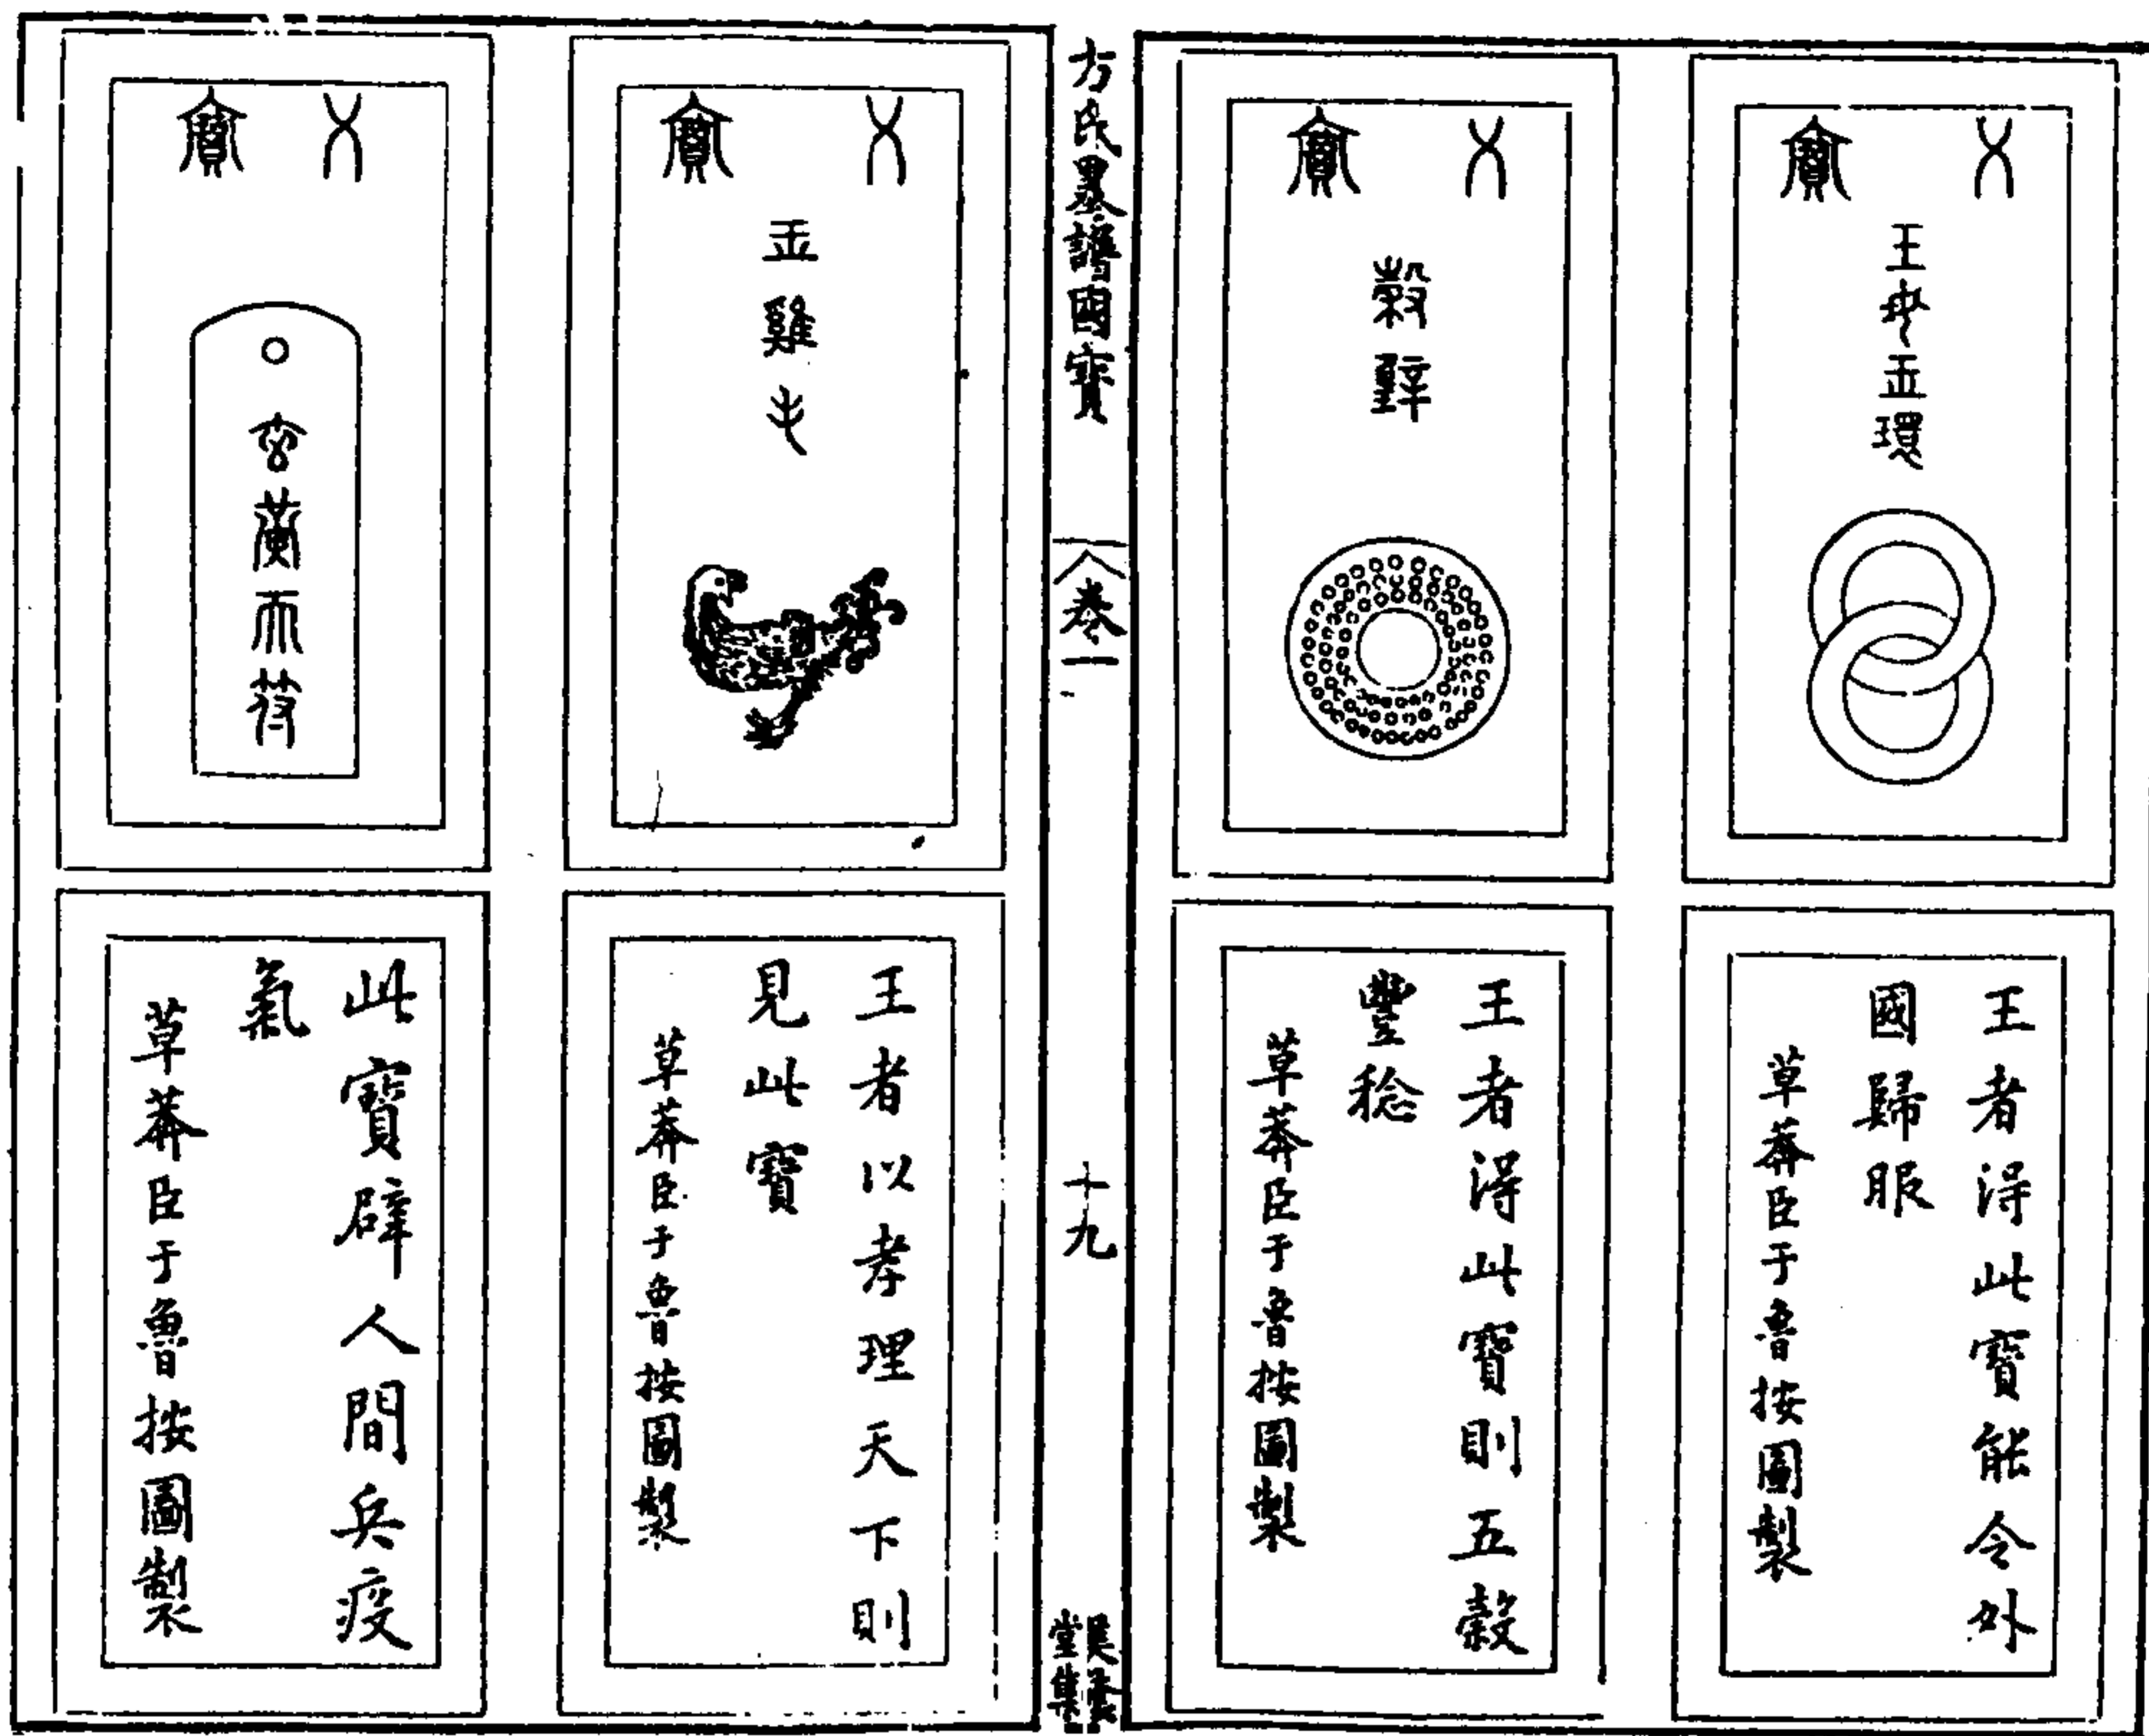 八寶
王母玉環
王者得此寶能令外
國歸服
草莽臣于魯按圖製
八寶
穀璧
王者得此寶則五穀
豐稔
草莽臣于魯按圖製
方氏墨譜國寶 卷一 十九 美蔭堂集
八寶
玉雞毛
王者以孝理天下則
見此寶
草莽臣于魯按圖製
八寶
玄黃天符
此寶辟人間兵疫
氣
草莽臣于魯按圖製